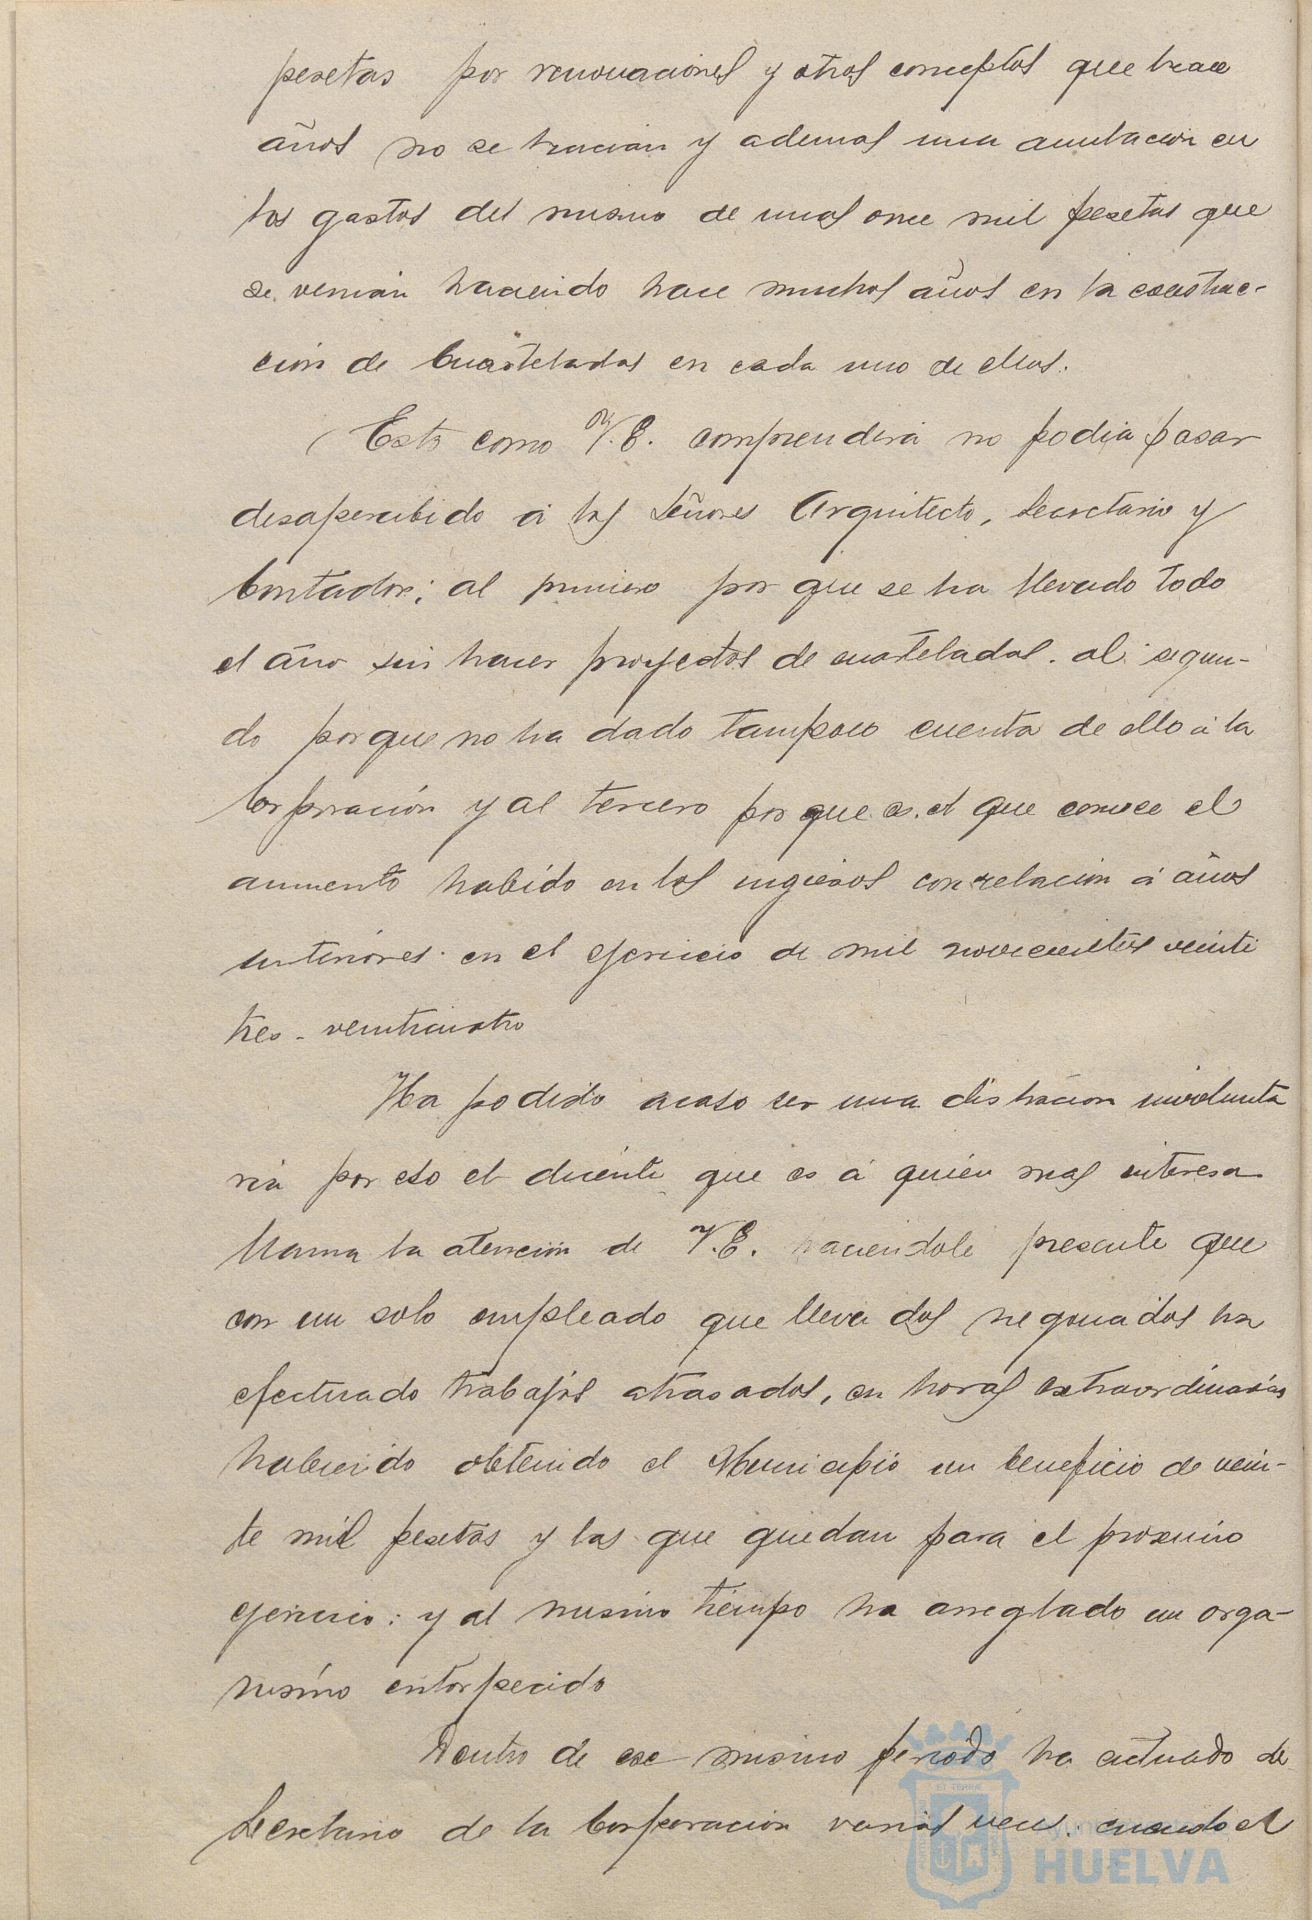 pesetas por renovaciones y otros conceptos que hace
años no se hacian y ademas una anulación en
los gastos del mismo de unas once mil pesetas que
se venian haciendo hace muchos años en la construc-
ción de Cuarteladas en cada uno de ellos.
Esto como V.E. comprenderá no podia pasar
desapercibido á los Señores Arquitecto, Secretario y
Contador; al primero por que se ha llevado todo
el año sin hacer proyectos de cuarteladas. al segun-
do porque no ha dado tampoco cuenta de ello á la
Corporación y al tercero por que es el que conoce el
aumento habido en los ingresos con relación á años
anteriores en el ejercicio de mil novecientos veinti
tres - veinticuatro
Ha podido acaso ser una distracion involunta
ria por eso el diciente que es á quien mas interesa
llama la atención de V.E. haciendole presente que
con un solo empleado que lleva dos negociados ha
efectuado trabajos atrasados, en horas extraordinarias
habiendo obtenido el Municipio un beneficio de vein-
te mil pesetas y las que quedan para el proximo
ejercicio: y al mismo tiempo ha arreglado un orga-
nismo entorpecido
Dentro de ese mismo periodo ha actuado de
Secretario de la Corporacion varias veces cuando el
HUELVA